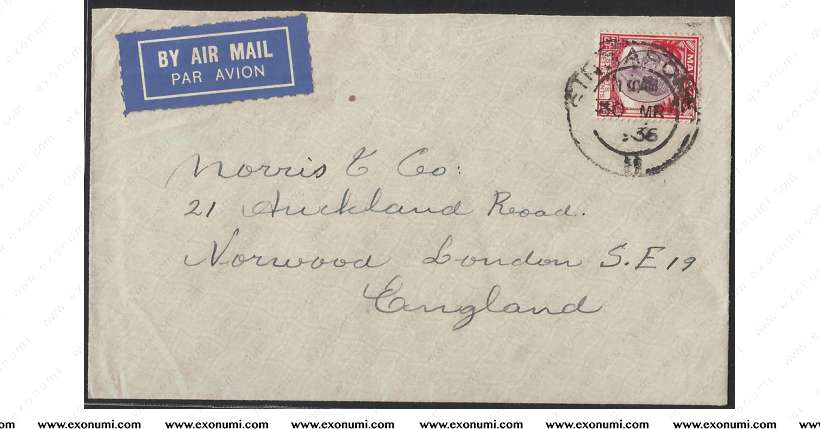 BY AIR MAIL
PAR AVION
SINGAPORE
30 MR
36
Norris & Co:
21 Auckland Road.
Norwood London S.E 19
England
www.exonumi.com www.exonumi.com www.exonumi.com www.exonumi.com www.exonumi.com